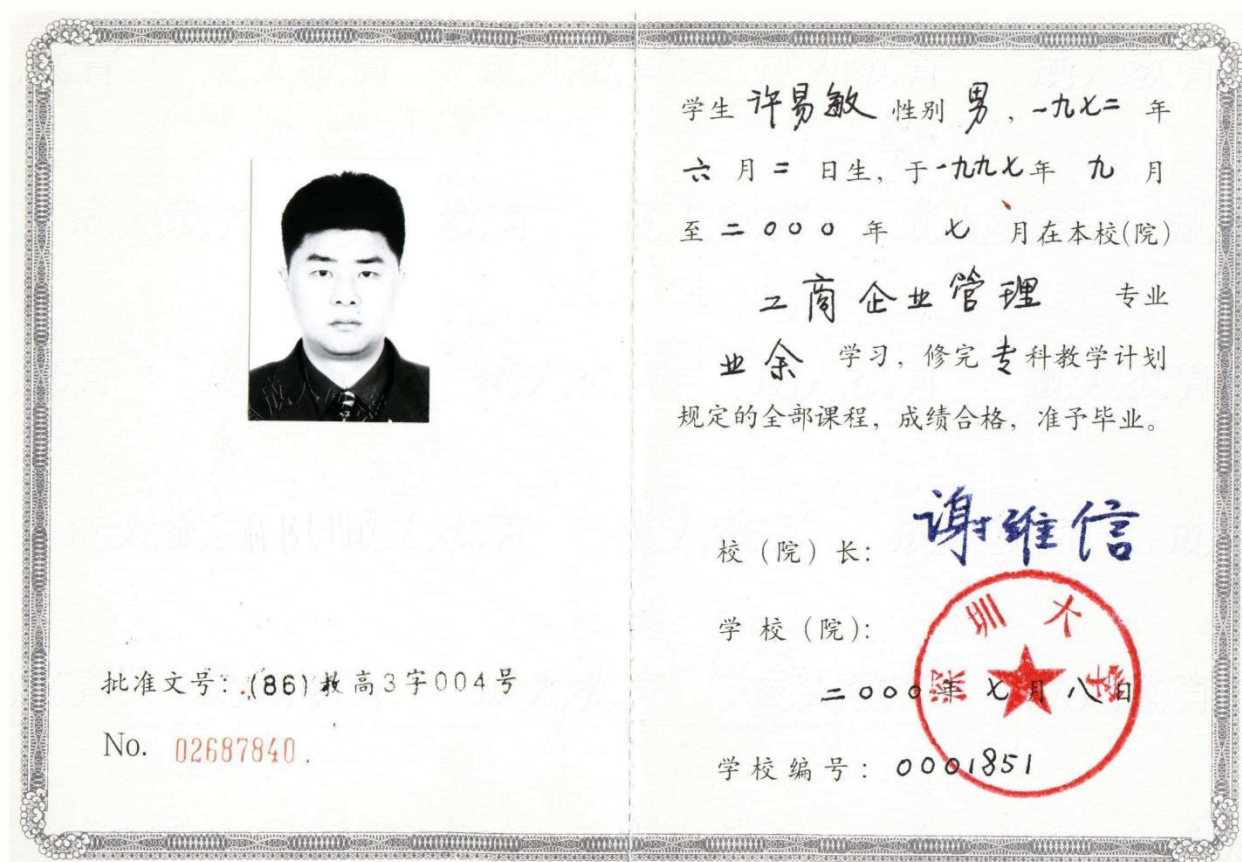 批准文号:(86)教高3字004号
No. 02687840.
学生 许易敏 性别 男,一九七二 年
六 月 二 日生,于一九九七年 九 月
至 二〇〇〇 年 七 月在本校(院)
工商企业管理 专业
业余 学习,修完 专 科教学计划
规定的全部课程,成绩合格,准予毕业。
校(院)长: 谢维信
学校(院):
深圳大学
二〇〇〇年七月八日
学校编号:0001851
成人教育